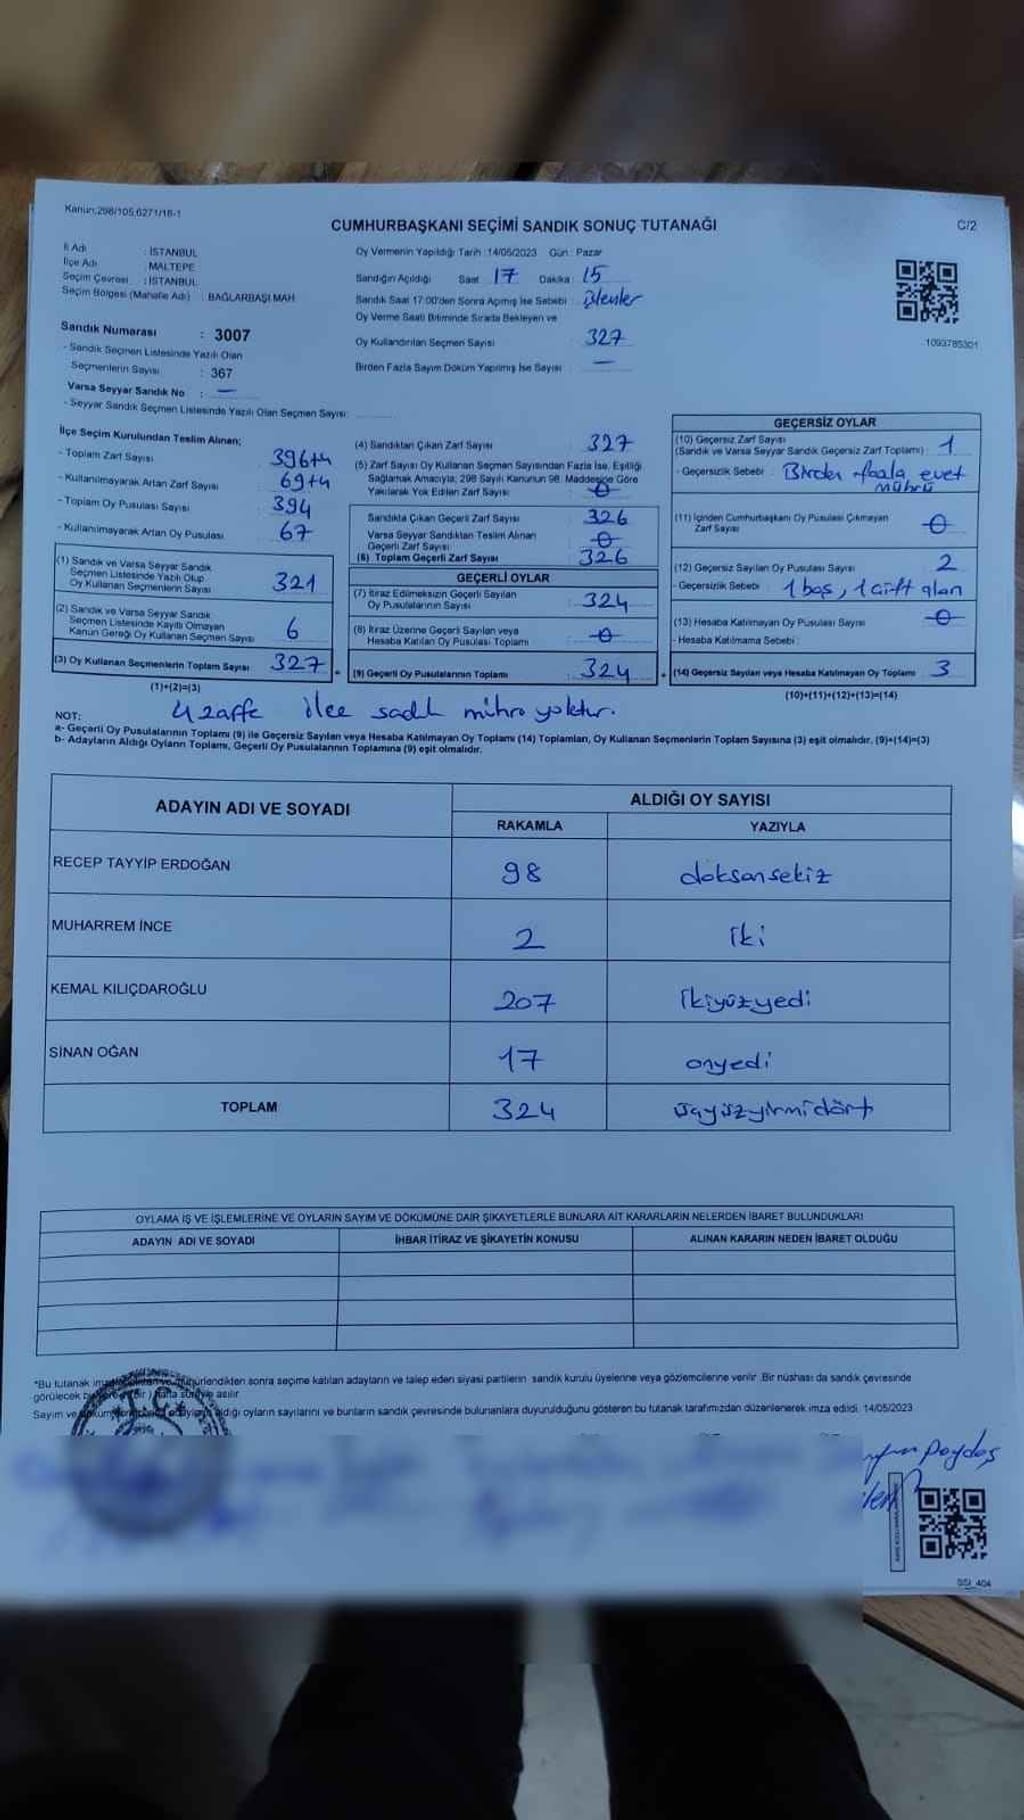 Kanun:298/105,6271/18-1
CUMHURBAŞKANI SEÇİMİ SANDIK SONUÇ TUTANAĞI
C/2
İl Adı : İSTANBUL
İlçe Adı : MALTEPE
Seçim Çevresi : İSTANBUL
Seçim Bölgesi (Mahalle Adı) : BAĞLARBAŞI MAH
Sandık Numarası : 3007
- Sandık Seçmen Listesinde Yazılı Olan
Seçmenlerin Sayısı : 367
Varsa Seyyar Sandık No : —
- Seyyar Sandık Seçmen Listesinde Yazılı Olan Seçmen Sayısı:
Oy Vermenin Yapıldığı Tarih :14/05/2023 Gün : Pazar
Sandığın Açıldığı Saat : 17 Dakika : 15
Sandık Saat 17:00'den Sonra Açmış İse Sebebi : işlemler
Oy Verme Saati Bitiminde Sırada Bekleyen ve
Oy Kullandırılan Seçmen Sayısı : 327
Birden Fazla Sayım Döküm Yapılmış İse Sayısı : —
1093785301
İlçe Seçim Kurulundan Teslim Alınan;
- Toplam Zarf Sayısı : 396+4
- Kullanılmayarak Artan Zarf Sayısı : 69+4
- Toplam Oy Pusulası Sayısı : 394
- Kullanılmayarak Artan Oy Pusulası : 67
(1) Sandık ve Varsa Seyyar Sandık
Seçmen Listesinde Yazılı Olup
Oy Kullanan Seçmenlerin Sayısı : 321
(2) Sandık ve Varsa Seyyar Sandık
Seçmen Listesinde Kayıtlı Olmayan
Kanun Gereği Oy Kullanan Seçmen Sayısı : 6
(3) Oy Kullanan Seçmenlerin Toplam Sayısı : 327 =
(1)+(2)=(3)
(4) Sandıktan Çıkan Zarf Sayısı : 327
(5) Zarf Sayısı Oy Kullanan Seçmen Sayısından Fazla İse, Eşitliği
Sağlamak Amacıyla; 298 Sayılı Kanunun 98. Maddesine Göre
Yakılarak Yok Edilen Zarf Sayısı : 0
Sandıkta Çıkan Geçerli Zarf Sayısı : 326
Varsa Seyyar Sandıktan Teslim Alınan
Geçerli Zarf Sayısı : 0
(6) Toplam Geçerli Zarf Sayısı : 326
GEÇERLİ OYLAR
(7) İtiraz Edilmeksizin Geçerli Sayılan
Oy Pusulalarının Sayısı : 324
(8) İtiraz Üzerine Geçerli Sayılan veya
Hesaba Katılan Oy Pusulası Toplamı : 0
(9) Geçerli Oy Pusulalarının Toplamı : 324 +
GEÇERSİZ OYLAR
(10) Geçersiz Zarf Sayısı
(Sandık ve Varsa Seyyar Sandık Geçersiz Zarf Toplamı) : 1
- Geçersizlik Sebebi : Birden fazla evet
mührü
(11) İçinden Cumhurbaşkanı Oy Pusulası Çıkmayan
Zarf Sayısı : 0
(12) Geçersiz Sayılan Oy Pusulası Sayısı : 2
- Geçersizlik Sebebi : 1 boş, 1 çift alan
(13) Hesaba Katılmayan Oy Pusulası Sayısı : 0
- Hesaba Katılmama Sebebi :
(14) Geçersiz Sayılan veya Hesaba Katılmayan Oy Toplamı : 3
(10)+(11)+(12)+(13)=(14)
4 zarfta
NOT:
a- Geçerli Oy Pusulalarının Toplamı (9) ile Geçersiz Sayılan veya Hesaba Katılmayan Oy Toplamı (14) Toplamları, Oy Kullanan Seçmenlerin Toplam Sayısına (3) eşit olmalıdır. (9)+(14)=(3)
b- Adayların Aldığı Oyların Toplamı, Geçerli Oy Pusulalarının Toplamına (9) eşit olmalıdır.
ADAYIN ADI VE SOYADI
ALDIĞI OY SAYISI
RAKAMLA YAZIYLA
RECEP TAYYİP ERDOĞAN 98 doksansekiz
MUHARREM İNCE 2 İki
KEMAL KILIÇDAROĞLU 207 İkiyüzyedi
SİNAN OĞAN 17 onyedi
TOPLAM 324 üçyüzyirmidört
OYLAMA İŞ VE İŞLEMLERİNE VE OYLARIN SAYIM VE DÖKÜMÜNE DAİR ŞİKAYETLERLE BUNLARA AİT KARARLARIN NELERDEN İBARET BULUNDUKLARI
ADAYIN ADI VE SOYADI
İHBAR İTİRAZ VE ŞİKAYETİN KONUSU
ALINAN KARARIN NEDEN İBARET OLDUĞU
*Bu tutanak sonra seçime katılan adayların ve talep eden siyasi partilerin sandık kurulu üyelerine veya gözlemcilerine verilir. Bir nüshası da sandık çevresinde
görülecek hafta süreyle asılır
Sayım ve aldığı oyların sayılarını ve bunların sandık çevresinde bulunanlara duyurulduğunu gösteren bu tutanak tarafımızdan düzenlenerek imza edildi. 14/05/2023
Paydaş
SSI_404